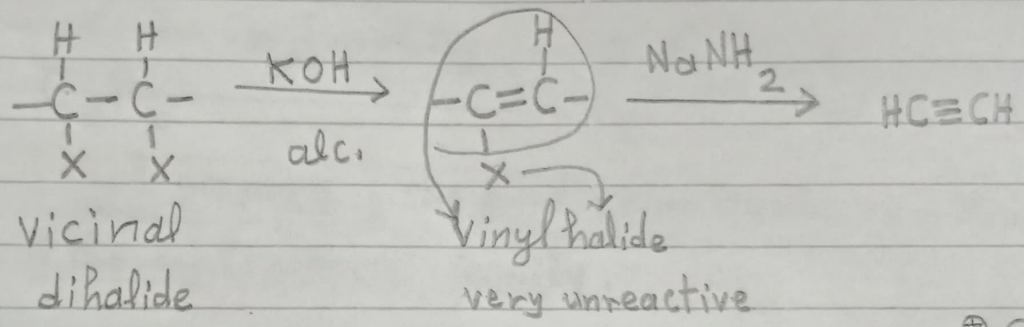 H H
—C—C— KOH alc. —C=C— NaNH2 HC≡CH
X X
H
X
vicinal
dihalide
Vinyl halide
very unreactive